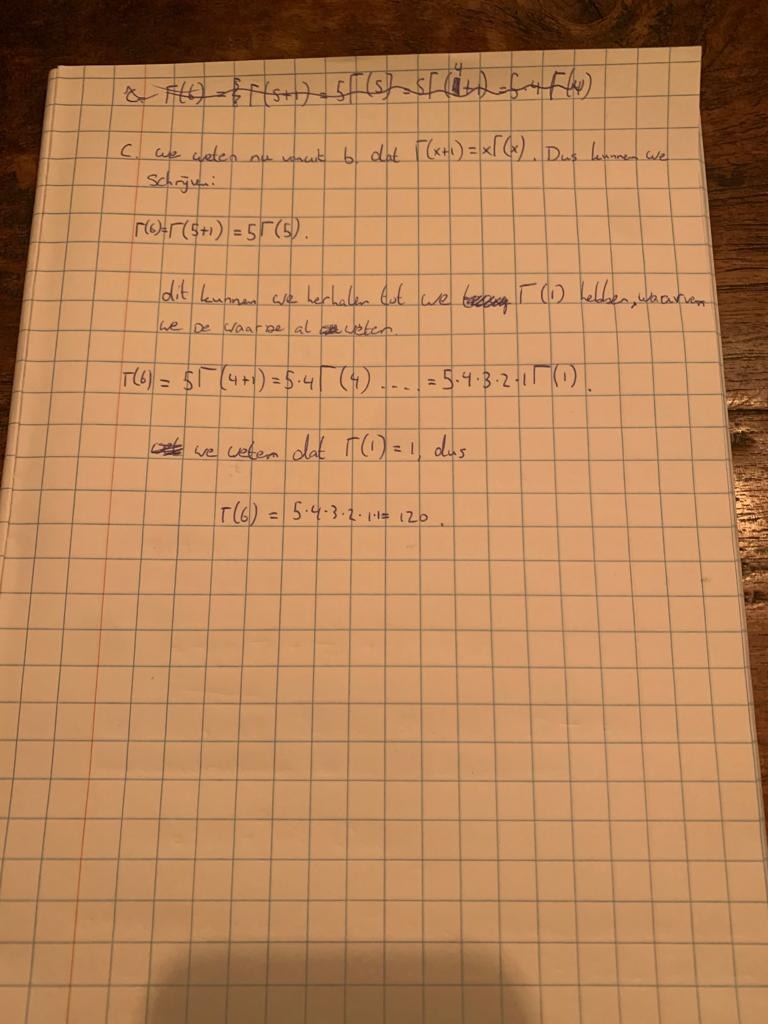 Γ(6) = Γ(5+1) = 5Γ(5) = 5Γ(4+1) = 5·4 Γ(4)
C. we weten nu vanuit b. dat Γ(x+1) = xΓ(x). Dus kunnen we
schrijven:
Γ(6)=Γ(5+1) = 5Γ(5).
dit kunnen we herhalen tot we Γ(1) hebben, waarvan
we de waarde al weten.
Γ(6) = 5Γ(4+1) = 5·4Γ(4) .... = 5·4·3·2·1Γ(1).
we weten dat Γ(1) = 1, dus
Γ(6) = 5·4·3·2·1·1= 120.